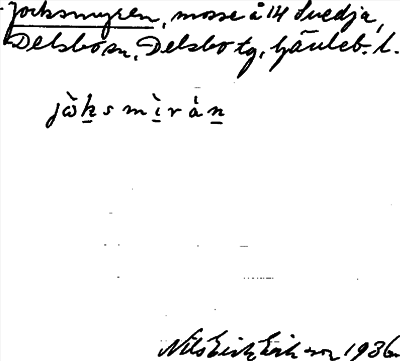 Jocksmyren, mosse å 14 Svedja,
Delsbo sn, Delsbo tg, Gävleb. l.
jὼk s m ì r å n
Nils Erik Eriksson 1936